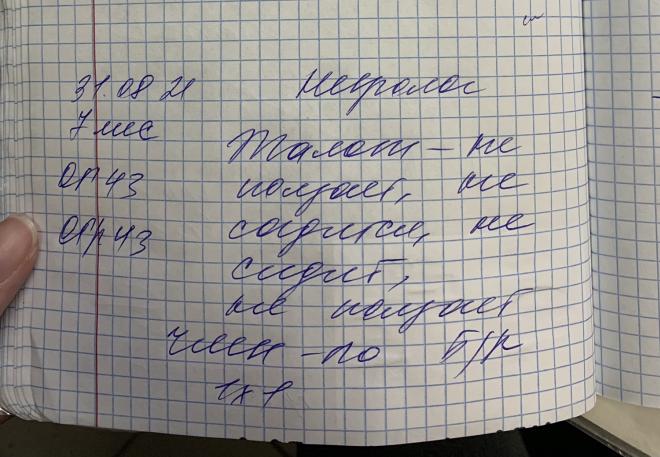 31.08 21 Невролог
7 мес Жалоы – не
ОГ 43 ползает, не
ОГр 43 садится, не
сидит,
не ползает
член – по б/р